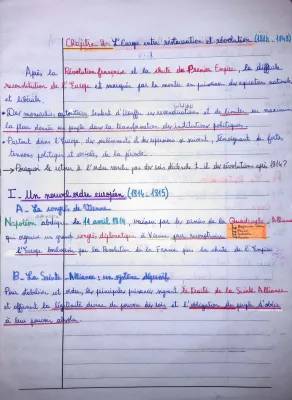 Chapitre 2 : L'Europe entre restauration et révolution (1814 - 1848)
Après la Révolution française et la chute du Premier Empire, la difficile
reconstitution de l'Europe est marquée par la montée en puissance des aspirations nationales
et libérales.
• Des monarchies autoritaires tentent d'étouffer ces revendications et de limiter au maximum
la place donnée au peuple dans la transformation des institutions politiques.
• Partout dans l'Europe, des soulèvements et des répressions se suivent, témoignant de fortes
tensions politiques et sociales de la période.
→ Pourquoi le retour à l'ordre voulu par les rois des révolutions après 1814 ?
I - Un nouvel ordre européen (1814-1815)
A - Le congrès de Vienne
Napoléon abdique le 11 avril 1814, vaincu par les armées de la Quadruple Alliance
qui signent un grand congrès diplomatique à Vienne pour reconstruire
l'Europe bouleversée par la Révolution de la France que la chute de l'Empire.
B - La Sainte-Alliance : un système répressif
Pour stabiliser cet ordre, les principales puissances signent le Traité de la Sainte Alliance
et affirment la légitimité divine du pouvoir des rois et l'obligation du peuple d'obéir
à leur pouvoir absolu.